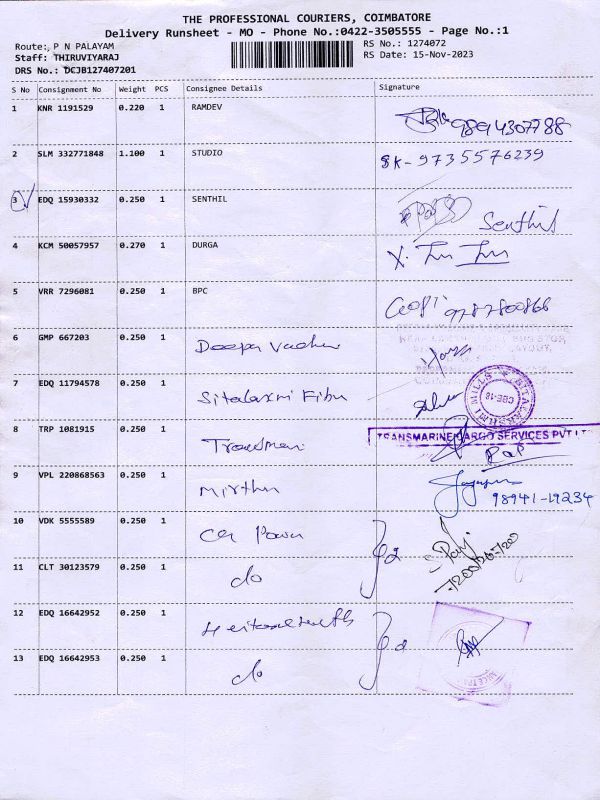 THE PROFESSIONAL COURIERS, COIMBATORE
Delivery Runsheet - MO - Phone No.:0422-3505555 - Page No.:1
Route:, P N PALAYAM
RS No.: 1274072
Staff: THIRUVIYARAJ
RS Date: 15-Nov-2023
DRS No.: DCJB127407201
S No Consignment No Weight PCS Consignee Details Signature
1 KNR 1191529 0.220 1 RAMDEV 9894307788
2 SLM 332771848 1.100 1 STUDIO SK- 9735576239
3 EDQ 15930332 0.250 1 SENTHIL Senthil
4 KCM 50057957 0.270 1 DURGA
5 VRR 7296081 0.250 1 BPC Gopi 9787800866
6 GMP 667203 0.250 1 Deepa
7 EDQ 11794578 0.250 1 Sitalaxmi Fibr
SITALAKSHMI MILLS CBE-18
8 TRP 1081915 0.250 1
TRANSMARINE CARGO SERVICES PVT LTD
9 VPL 220868563 0.250 1 Mirthu 98941-19234
10 VDK 5555589 0.250 1 Power
11 CLT 30123579 0.250 1 do
12 EDQ 16642952 0.250 1
13 EDQ 16642953 0.250 1 do